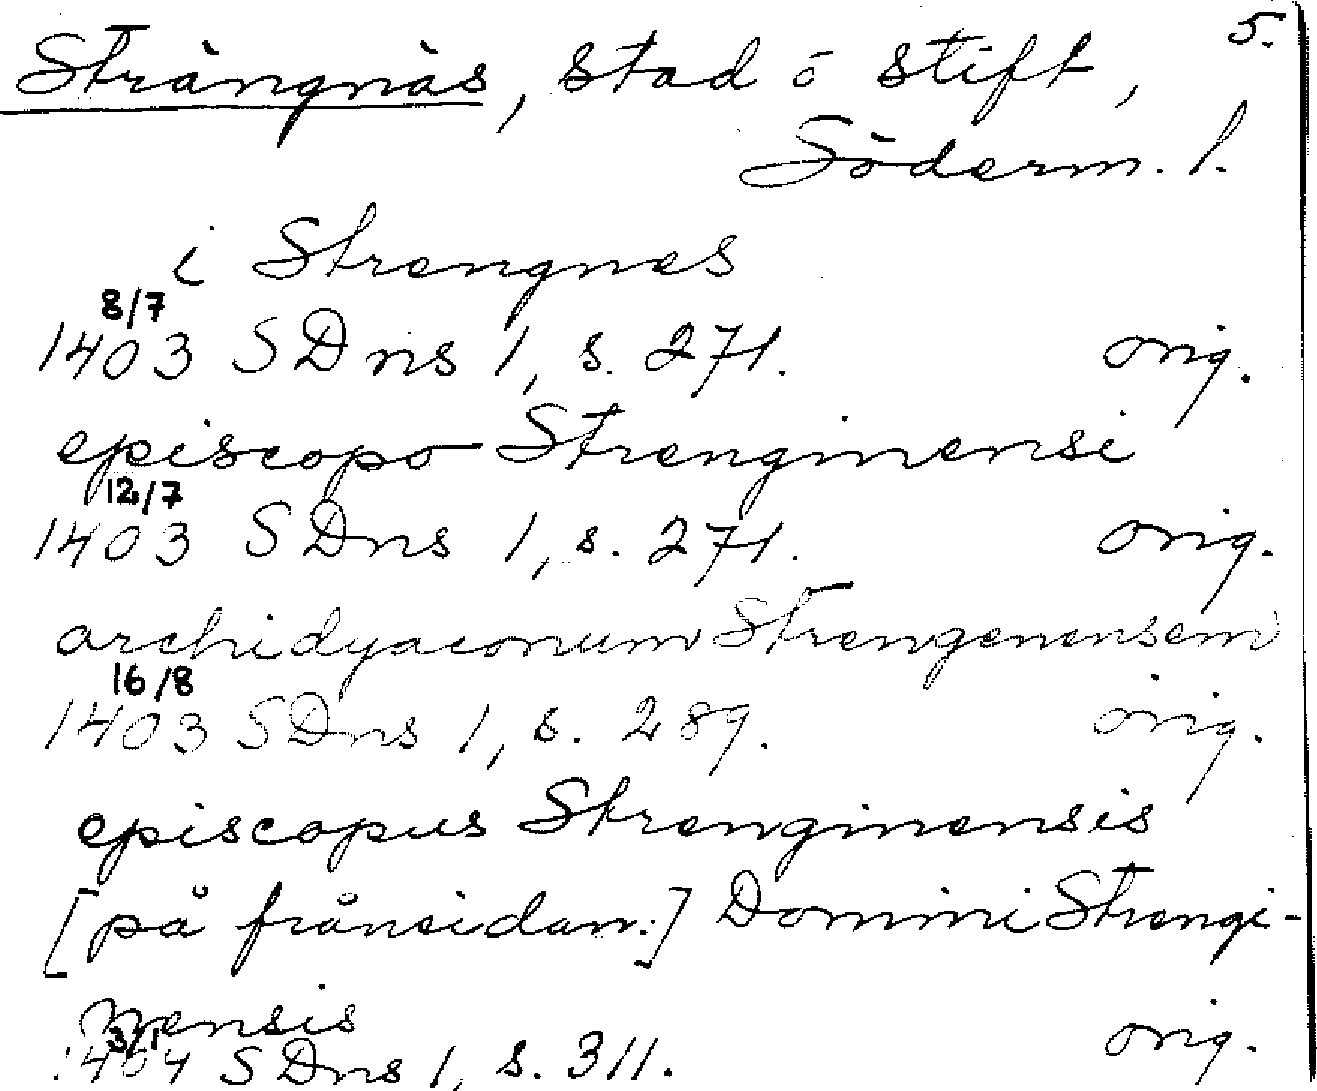 5.
Strängnäs, stad o stift,
Söderm. l.
i Strengnes
8/7
1403 SDns 1, s. 271. orig.
episcopo Strenginensi
12/7
1403 SDns 1, s. 271. orig.
archidyaconum Strengenensem
16/8
1403 SDns 1, s. 289. orig.
episcopus Strenginensis
[på frånsidan:] Domini Strengi-
nensis
3/1
1404 SDns 1, s. 311. orig.